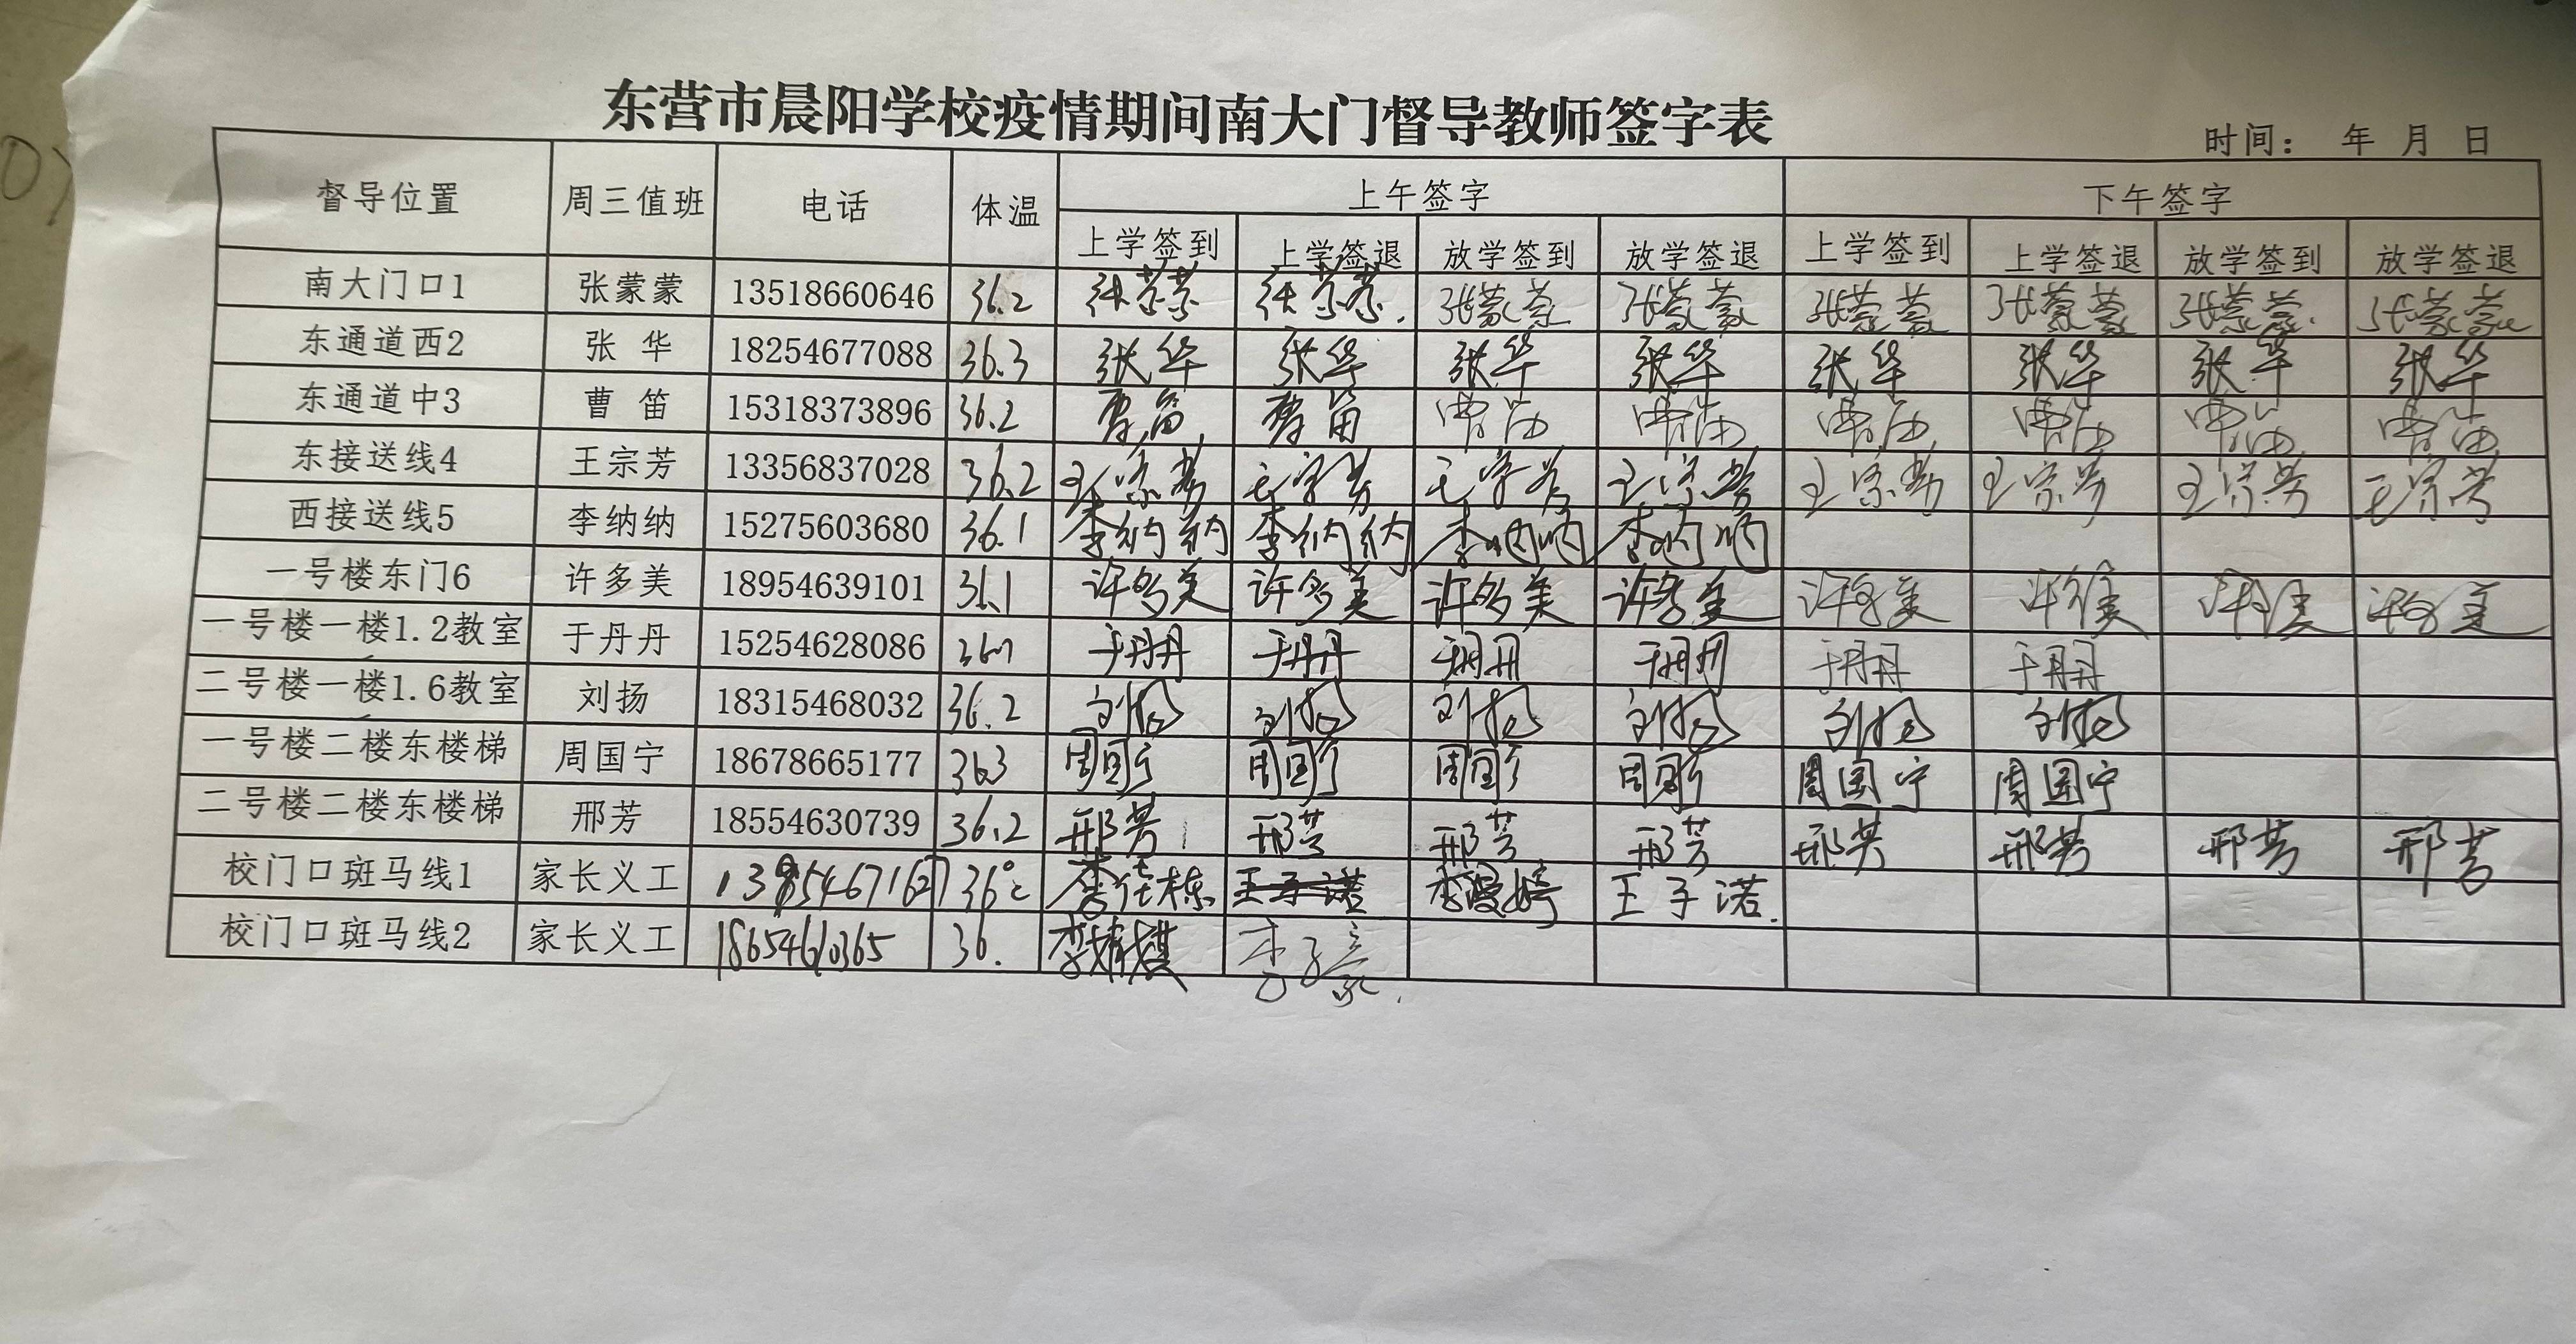 东营市晨阳学校疫情期间南大门督导教师签字表
时间： 年 月 日
督导位置 周三值班 电话 体温 上午签字 下午签字
上学签到 上学签退 放学签到 放学签退 上学签到 上学签退 放学签到 放学签退
南大门口1 张蒙蒙 13518660646 36.2 张蒙蒙 张蒙蒙 张蒙蒙 张蒙蒙 张蒙蒙 张蒙蒙 张蒙蒙 张蒙蒙
东通道西2 张 华 18254677088 36.3 张华 张华 张华 张华 张华 张华 张华 张华
东通道中3 曹 笛 15318373896 36.2 曹笛 曹笛 曹笛 曹笛 曹笛 曹笛 曹笛 曹笛
东接送线4 王宗芳 13356837028 36.2 王宗芳 王宗芳 王宗芳 王宗芳 王宗芳 王宗芳 王宗芳 王宗芳
西接送线5 李纳纳 15275603680 36.1 李纳纳 李纳纳 李纳纳 李纳纳
一号楼东门6 许多美 18954639101 36.1 许多美 许多美 许多美 许多美 许多美 许多美 许多美 许多美
一号楼一楼1.2教室 于丹丹 15254628086 于丹丹 于丹丹 于丹丹 于丹丹 于丹丹 于丹丹
二号楼一楼1.6教室 刘扬 18315468032 36.2 刘扬 刘扬 刘扬 刘扬 刘扬 刘扬
一号楼二楼东楼梯 周国宁 18678665177 36.3 周国宁 周国宁 周国宁 周国宁 周国宁 周国宁
二号楼二楼东楼梯 邢芳 18554630739 36.2 邢芳 邢芳 邢芳 邢芳 邢芳 邢芳 邢芳 邢芳
校门口斑马线1 家长义工 36℃ 王子诺 王子诺.
校门口斑马线2 家长义工 36.